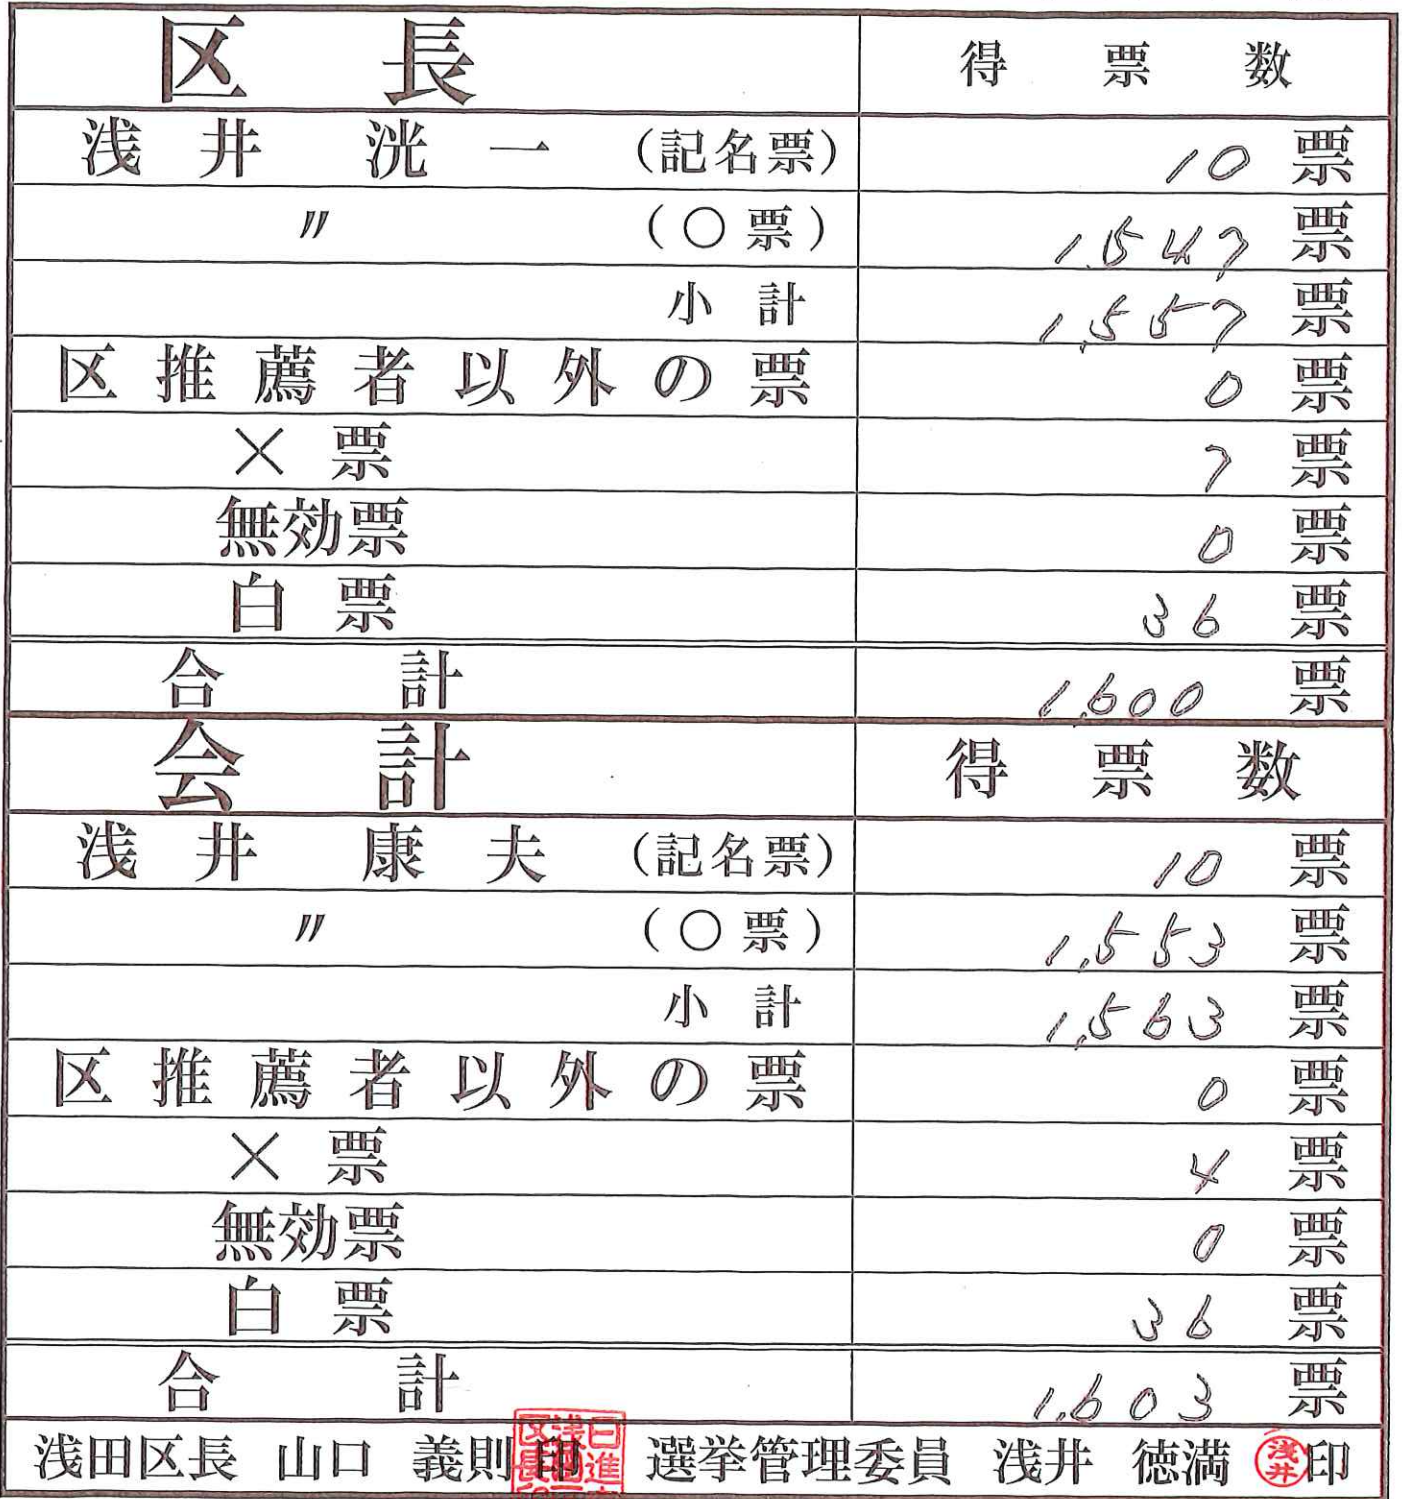 区 長 得 票 数
浅 井 洸 一 (記名票) 10 票
〃 (○票) 1,547 票
小 計 1,557 票
区推薦者以外の票 0 票
× 票 7 票
無効票 0 票
白 票 36 票
合 計 1,600 票
会 計 得 票 数
浅 井 康 夫 (記名票) 10 票
〃 (○票) 1,553 票
小 計 1,563 票
区推薦者以外の票 0 票
× 票 4 票
無効票 0 票
白 票 36 票
合 計 1,603 票
浅田区長 山口 義則 印 選挙管理委員 浅井 徳満 浅井 印